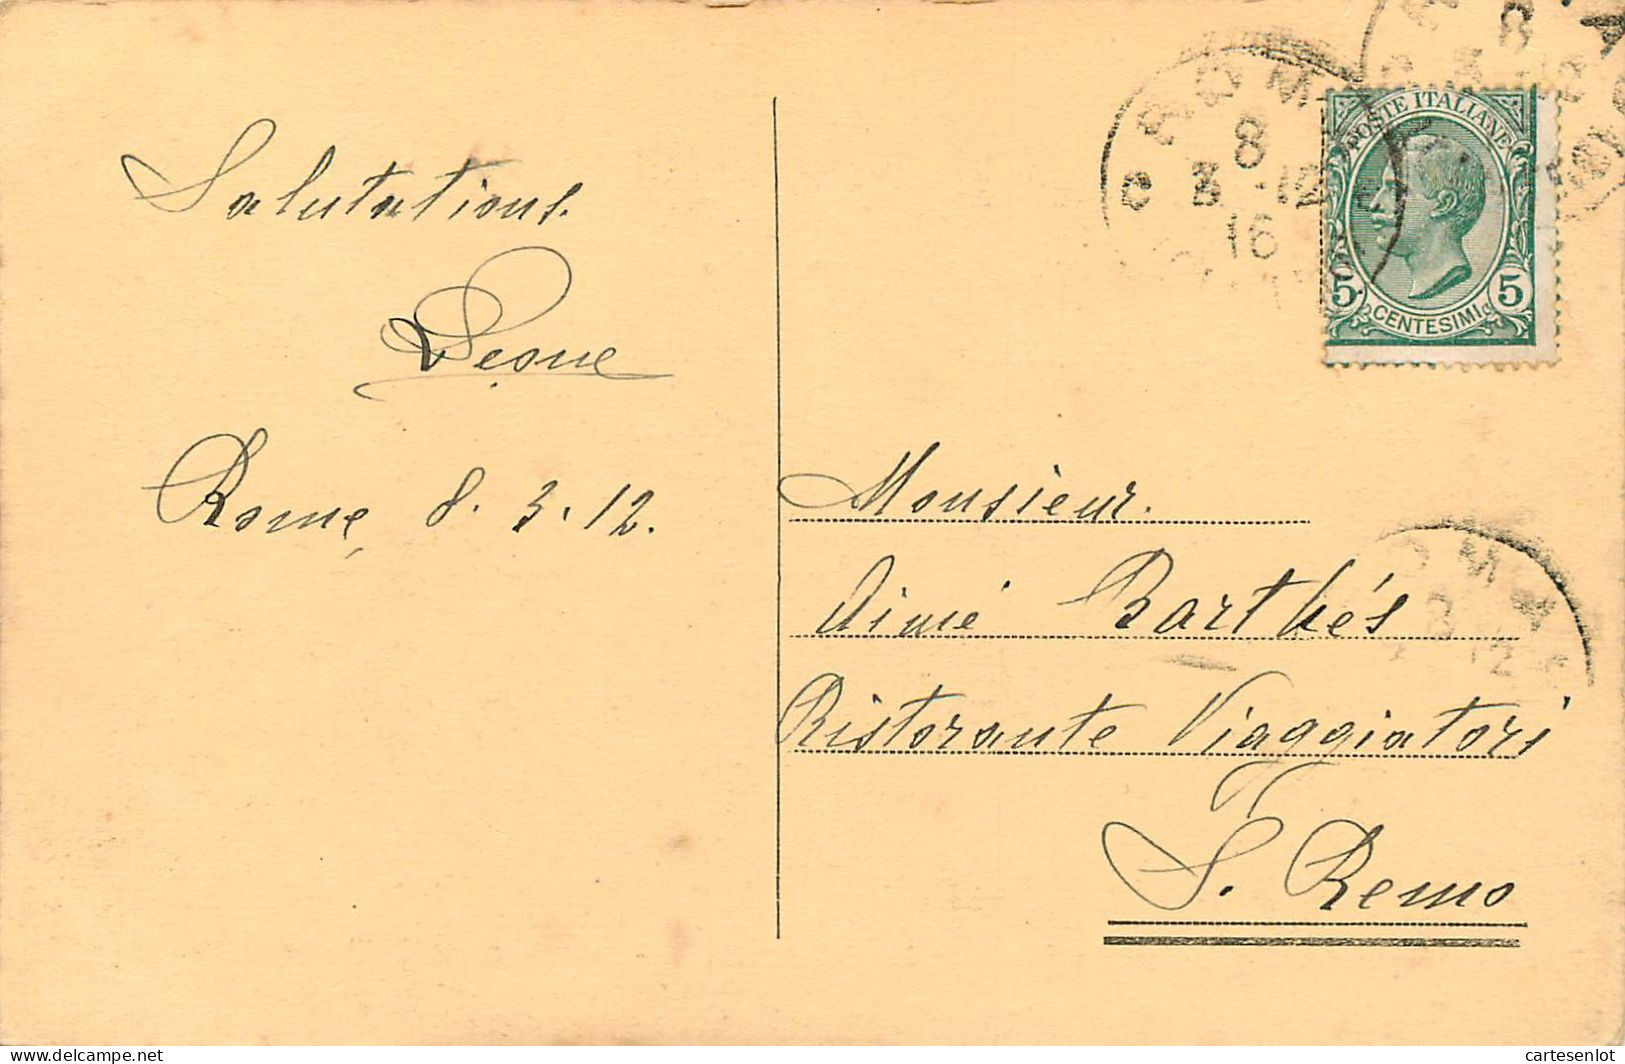 Salutations.
Leone
Rome, 8. 3. 12.
ROMA
8
3 - 12
16
POSTE ITALIANE
5 5
CENTESIMI
Monsieur.
Aimé Barthés
Ristorante Viaggiatori
S. Remo
cartesenlot